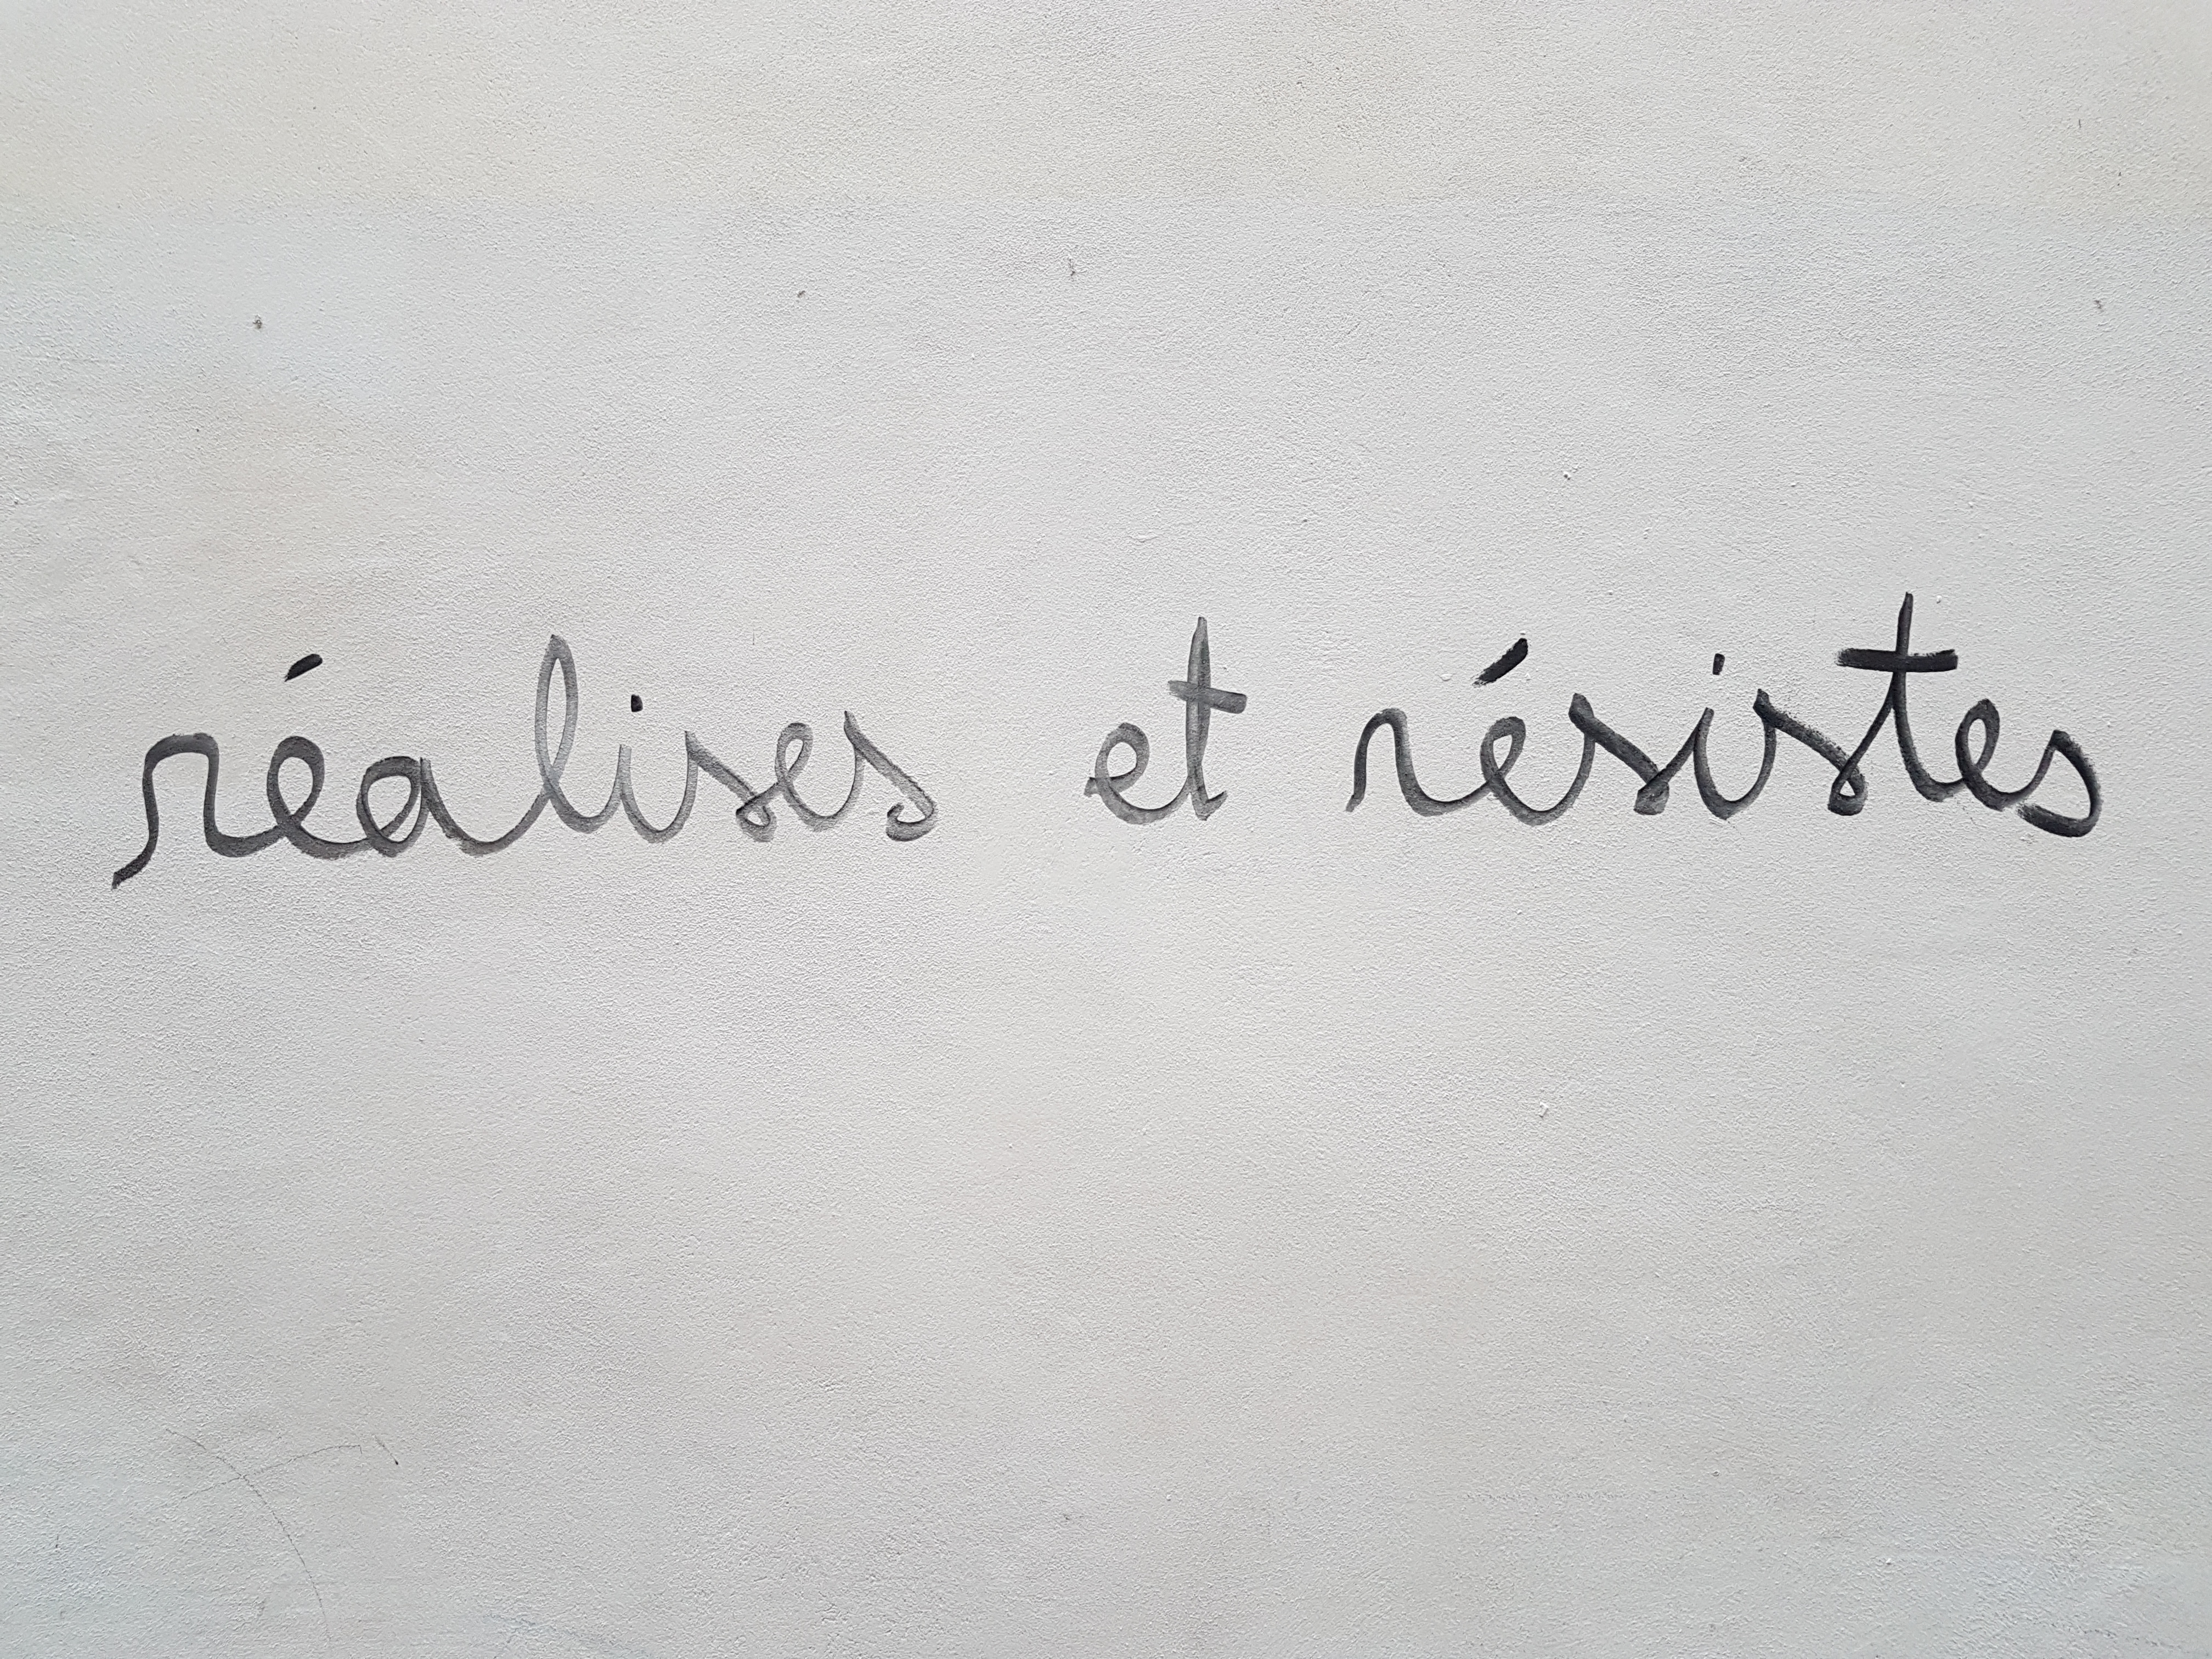 réalises et résistes